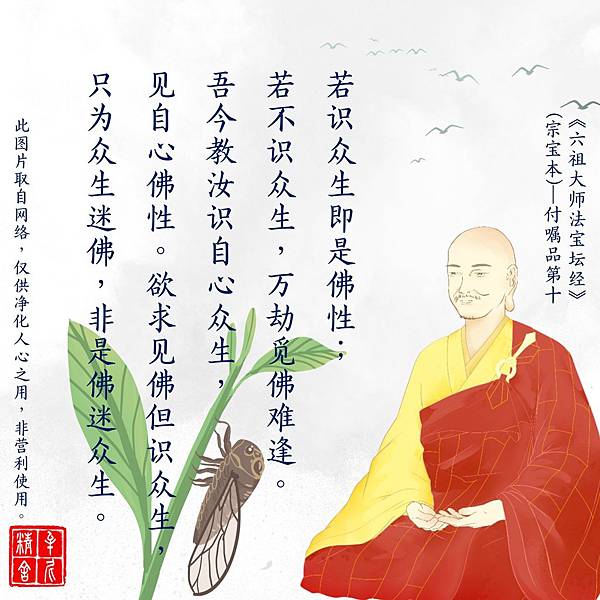 《六祖大师法宝坛经》
(宗宝本)—付嘱品第十
若识众生即是佛性；
若不识众生，万劫觅佛难逢。
吾今教汝识自心众生，
见自心佛性。欲求见佛但识众生，
只为众生迷佛，非是佛迷众生。
此图片取自网络，仅供净化人心之用，非营利使用。
精舍